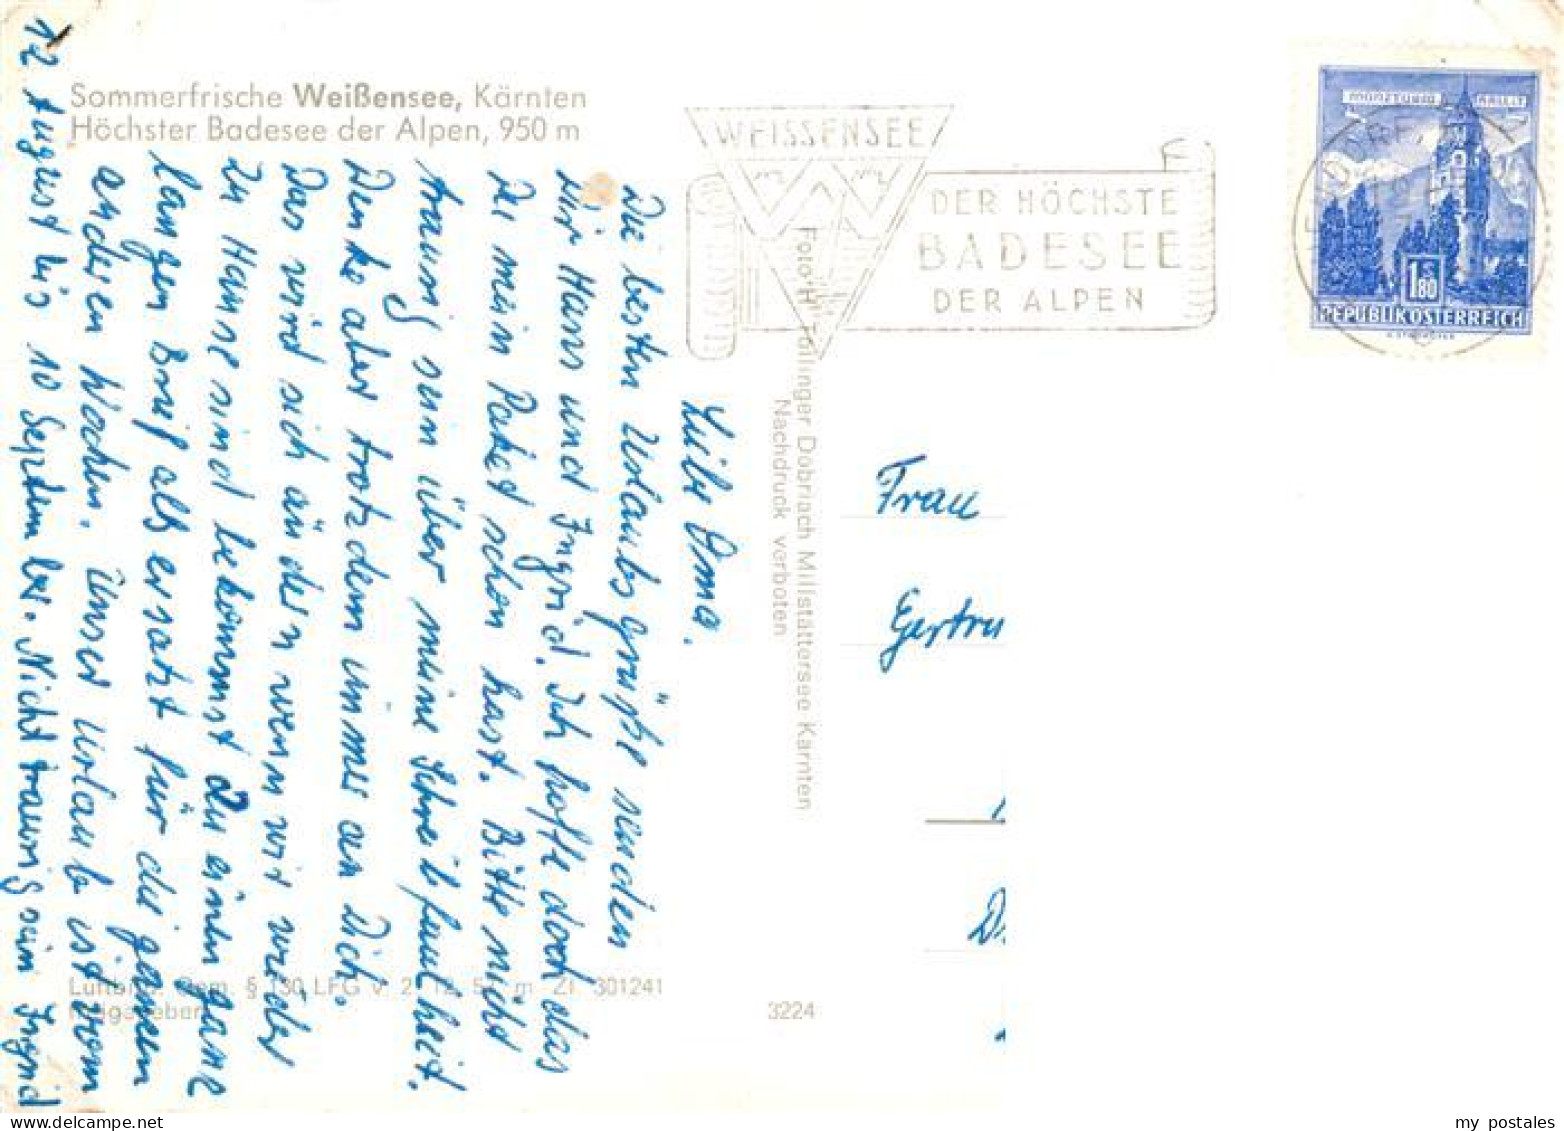 Sommerfrische Weißensee, Kärnten
Höchster Badesee der Alpen, 950 m
WEISSENSEE
DER HÖCHSTE
BADESEE
DER ALPEN
MÜNZTURM HALL I. T.
1.80
REPUBLIK ÖSTERREICH
Liebe Oma.
Die besten Urlaubsgrüße senden
Dir Hans und Ingrid. Ich hoffe doch das
Du mein Paket schon hast. Bitte nicht
traurig sein über meine Schreibfaulheit.
Denke aber trotzdem immer an Dich.
Das wird sich ändern wenn wir wieder
zu Hause sind bekommst Du einen ganz
langen Brief als ersatzt für die ganzen
anderen Wochen. Unser Urlaub ist vom
12 August bis 10 September. Nicht traurig sein Ingrid
Foto "H" Tollinger Dobriach Millstättersee Kärnten
Nachdruck verboten
Frau
Gertru
D
3224
301241
my postales